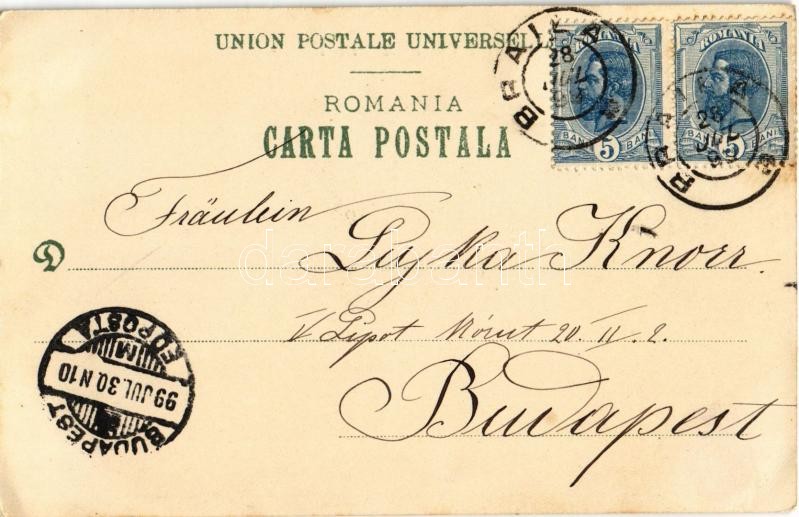 UNION POSTALE UNIVERSELLE
ROMANIA
CARTA POSTALA
ROMANIA
BANI 5 BANI
ROMANIA
BANI 5 BANI
BRAILA
28 JUL 99
BRAILA
28 JUL 99
Fräulein
Lyka Knorr
V Lipot Körut 20. II. 2.
Budapest
BUDAPEST
99 JUL. 30. N10
M
FŐPOSTA
darabanth